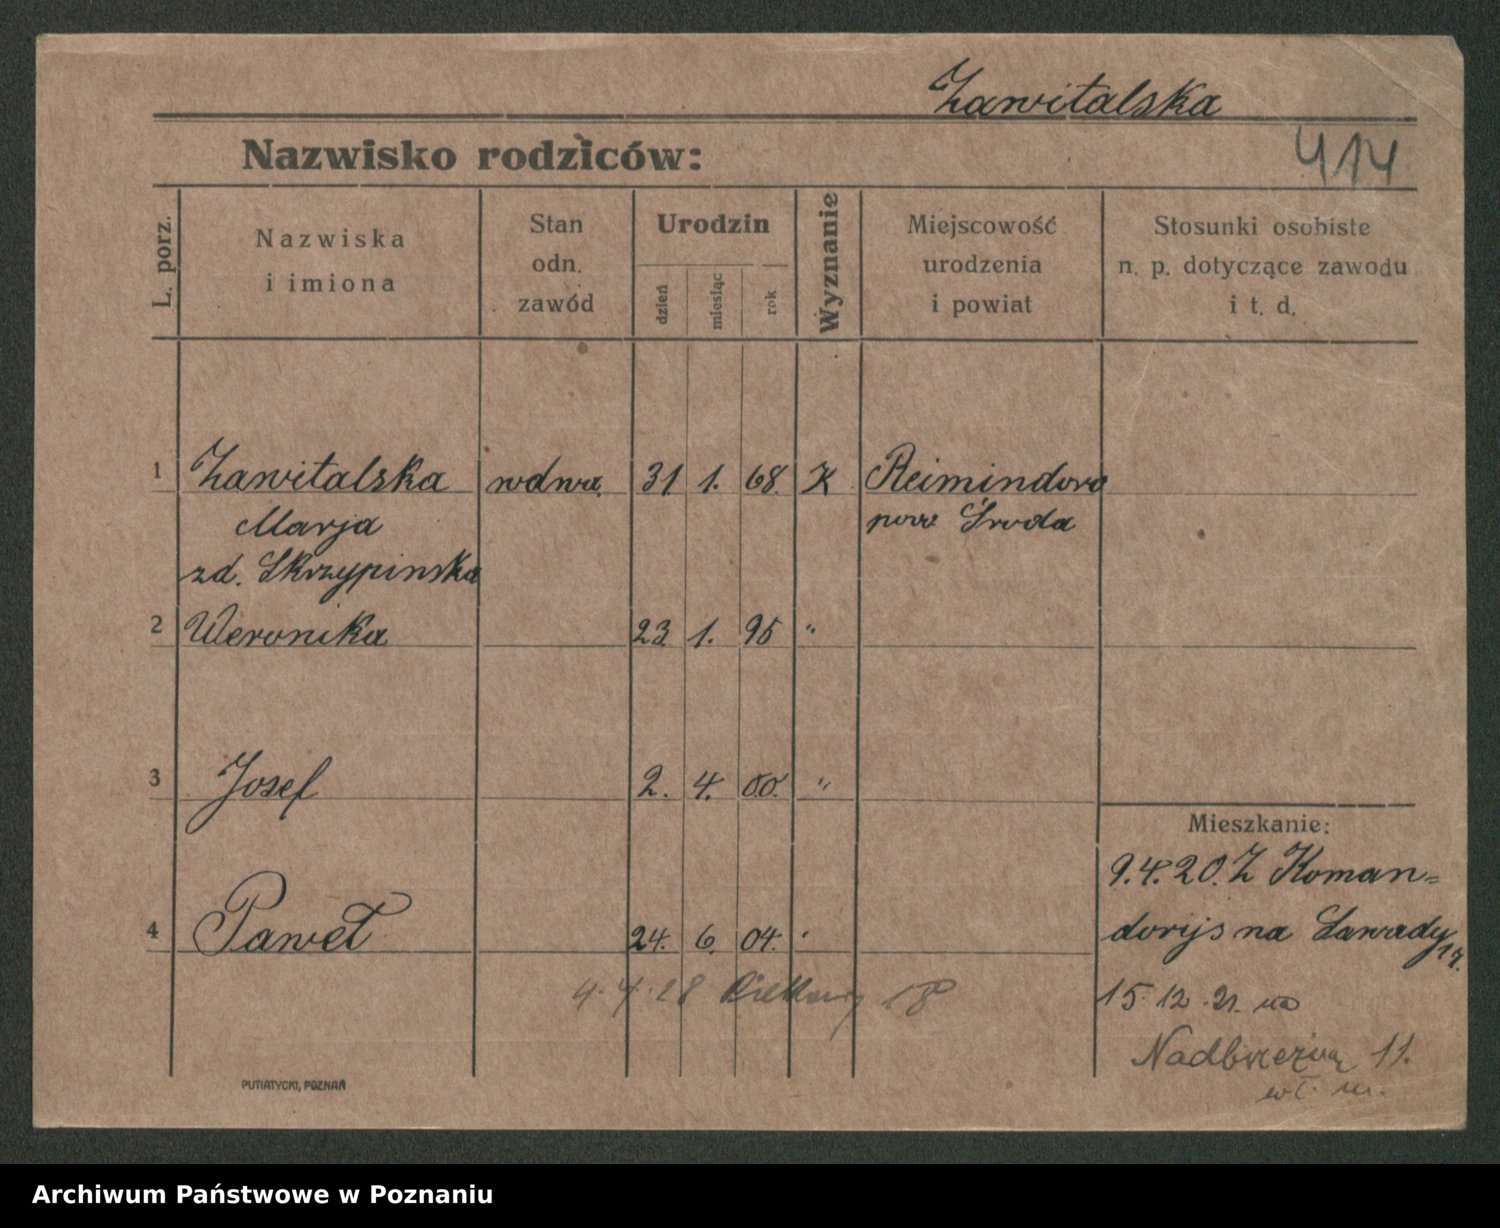 Zawitalska
414
Nazwisko rodziców:
L. porz.
Nazwiska
i imiona
Stan
odn.
zawód
Urodzin
dzień
miesiąc
rok
Wyznanie
Miejscowość
urodzenia
i powiat
Stosunki osobiste
n. p. dotyczące zawodu
i t. d.
1 Zawitalska wdwa. 31 1. 68. K Reimindowo
Marja pow Środa
zd. Skrzypinska
2 Weronika 23. 1. 95 "
3 Josef 2. 4. 00. "
Mieszkanie:
9.4.20. Z Koman=
4 Paweł 24. 6. 04. "
dorijs na Zawady 17.
4.4.28 18
15.12.21. na
Nadbrzeżną 11.
PUTIATYCKI, POZNAŃ
Archiwum Państwowe w Poznaniu